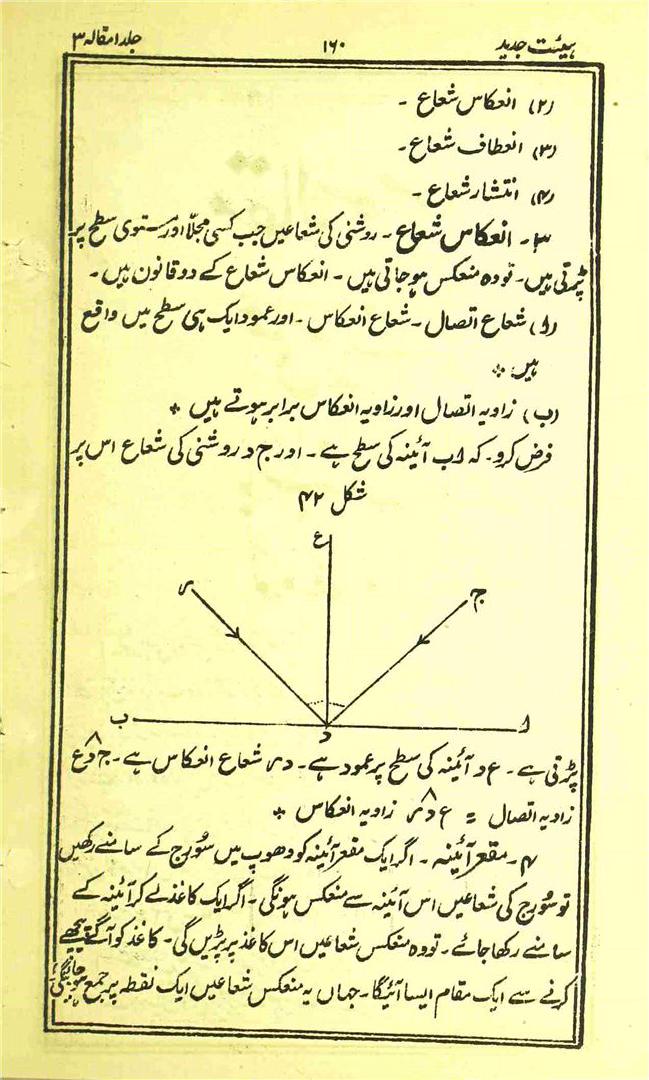 ہیئت جدید ۱۶۰ جلد ا مقالہ ۳
(۲) انعکاس شعاع ۔
(۳) انعطاف شعاع ۔
(۴) انتشار شعاع ۔
۳ ۔ انعکاس شعاع ۔ روشنی کی شعاعیں جب کسی مجلّا اور مستوی سطح پر
پڑتی ہیں ۔ تو وہ منعکس ہو جاتی ہیں ۔ انعکاس شعاع کے دو قانون ہیں ۔
(ا) شعاع اتصال ۔ شعاع انعکاس ۔ اور عمود ایک ہی سطح میں واقع
ہیں ٭
(ب) زاویہ اتصال اور زاویہ انعکاس برابر ہوتے ہیں ٭
فرض کرو ۔ کہ اب آئینہ کی سطح ہے ۔ اور ج د روشنی کی شعاع اس پر
شکل ۴۲
ع
ج
ر
ا
د
ب
پڑتی ہے ۔ ع د آئینہ کی سطح پر عمود ہے ۔ د ر شعاع انعکاس ہے ۔ ج د ع
زاویہ اتصال = ع د ر زاویہ انعکاس ٭
۴ ۔ مقعر آئینہ ۔ اگر ایک مقعر آئینہ کو دھوپ میں سُورج کے سامنے رکھیں
تو سُورج کی شعاعیں اس آئینہ سے منعکس ہونگی ۔ اگر ایک کاغذ لے کر آئینہ کے
سامنے رکھا جائے ۔ تو وہ منعکس شعاعیں اس کاغذ پر پڑیں گی ۔ کاغذ کو آگے پیچھے
کرنے سے ایک مقام ایسا آئیگا ۔ جہاں یہ منعکس شعاعیں ایک نقطہ پر جمع ہو جائیگی